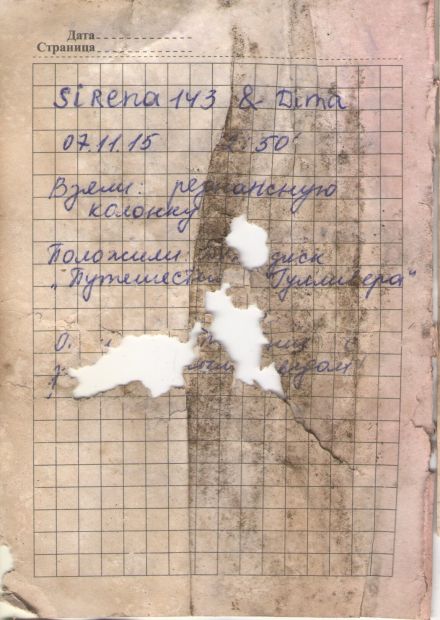 Дата
Страница
SiRena 143 & Dima
07.11.15 50
Взяли: резонансную
колонку
Положили: диск
"Путешеств Гулливера"
О.